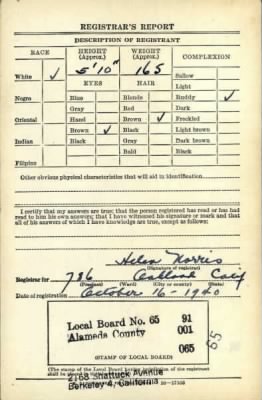 REGISTRAR'S REPORT
DESCRIPTION OF REGISTRANT
RACE HEIGHT (Approx.) WEIGHT (Approx.) COMPLEXION
White ✓ 5'10" 165 Sallow
EYES HAIR Light
Negro Blue Blonde Ruddy ✓
Gray Red Dark
Oriental Hazel Brown ✓ Freckled
Brown ✓ Black Light brown
Indian Black Gray Dark brown
Bald Black
Filipino
Other obvious physical characteristics that will aid in identification
I certify that my answers are true; that the person registered has read or has had
read to him his own answers; that I have witnessed his signature or mark and that all
of his answers of which I have knowledge are true, except as follows:
Helen Norris
(Signature of registrar)
Registrar for 786 Oakland Calif
(Precinct) (Ward) (City or county) (State)
Date of registration October 16 - 1940
Local Board No. 65 91
Alameda County 001
065
65
(STAMP OF LOCAL BOARD)
(The stamp of the Local Board having jurisdiction of the registrant
shall be placed in the above space.)
2168 Shattuck Avenue
Berkeley 4, California